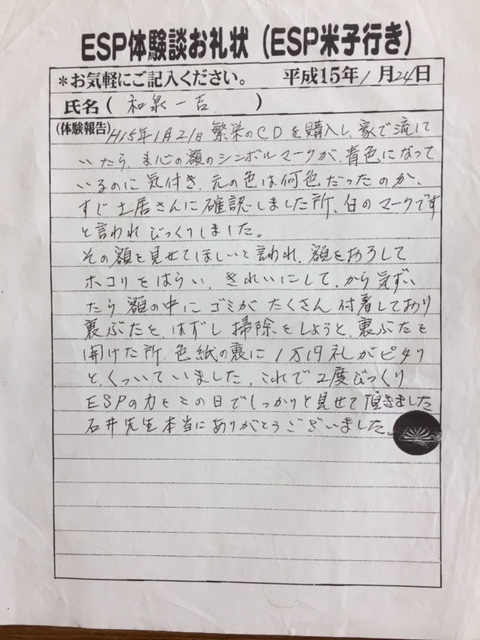 ESP体験談お礼状（ESP米子行き）
＊お気軽にご記入ください。 平成15年1月24日
氏名（ 和泉一吉 ）
（体験報告）H15年1月21日繁栄のCDを購入し、家で流して
いたら、心の額のシンボルマークが、青色になって
いるのに気付き、元の色は何色だったのか、
すじ土居さんに確認しました所、白のマークです
と言われびっくりしました。
その額を見せてほしいと言われ、額をおろして
ホコリをはらい、きれいにして、から気ずい
たら額の中にゴミがたくさん付着しており
裏ぶたを、はずし掃除をしようと、裏ぶたを
開けた所、色紙の裏に1万円札がピタリ
と、くっついていました、これで2度びっくり
ESPの力をこの目でしっかりと見せて頂きました
石井先生本当にありがとうございました。